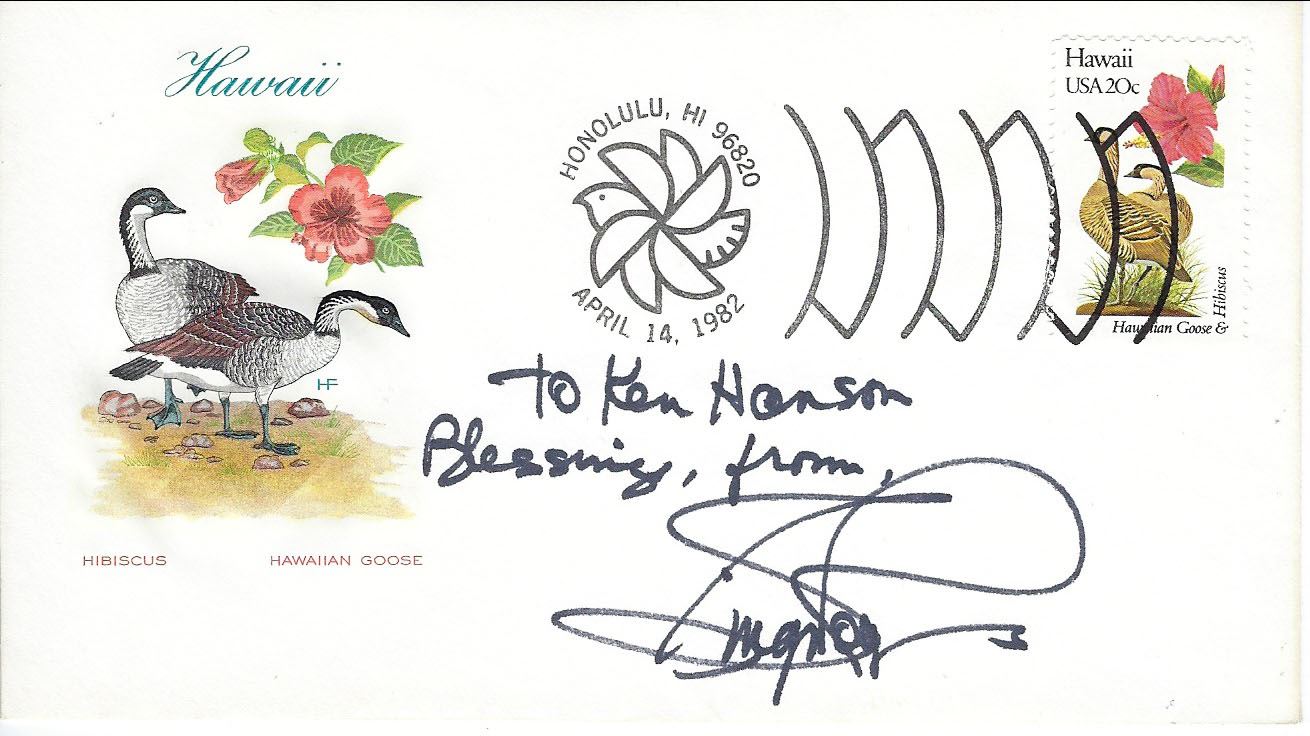 Hawaii
HONOLULU, HI 96820
APRIL 14, 1982
Hawaii
USA 20c
Hawaiian Goose &
Hibiscus
HF
To Ken Hanson
Blessings, from,
HIBISCUS HAWAIIAN GOOSE